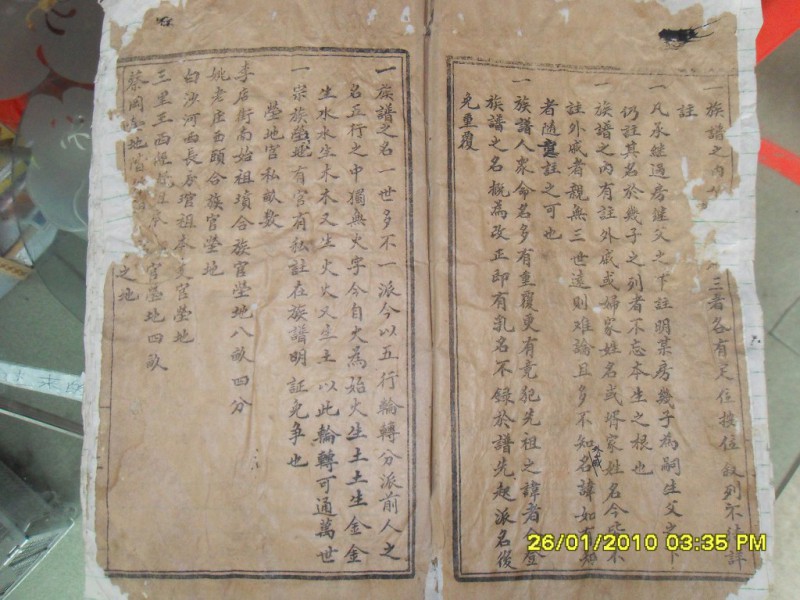 一族譜之内
三者各有定位按位叙列不
註
一凡承继過房继父之下註明某房幾子為嗣生父之下
仍註其名於幾子之列者不忘本生之根也
一族譜之内有註外戚或婦家姓名或壻家姓名今
不
註外戚者親無三世遠則难論且多不知名諱如有
者随意註之可也
一族譜人衆命名多有重覆更有竟犯先祖之諱者今
族譜之名概為改正即有乳名不錄於譜先起派名後
免重覆
一族譜之名一世多不一派今以五行輪轉分派前人之
名五行之中獨無火字今自火為始火生土土生金金
生水水生木木又生火火又生土以此輪轉可通萬世
一宗族塋地有官有私註在族譜明証免争也
塋地官私畝數
李店街南始祖墳合族官塋地八畝四分
姚老庄西頭合族官塋地
白沙河西長房瓚祖本支官塋地
三里王西
官塋地四畝
蔡岡塋地
之地
26/01/2010 03:35 PM